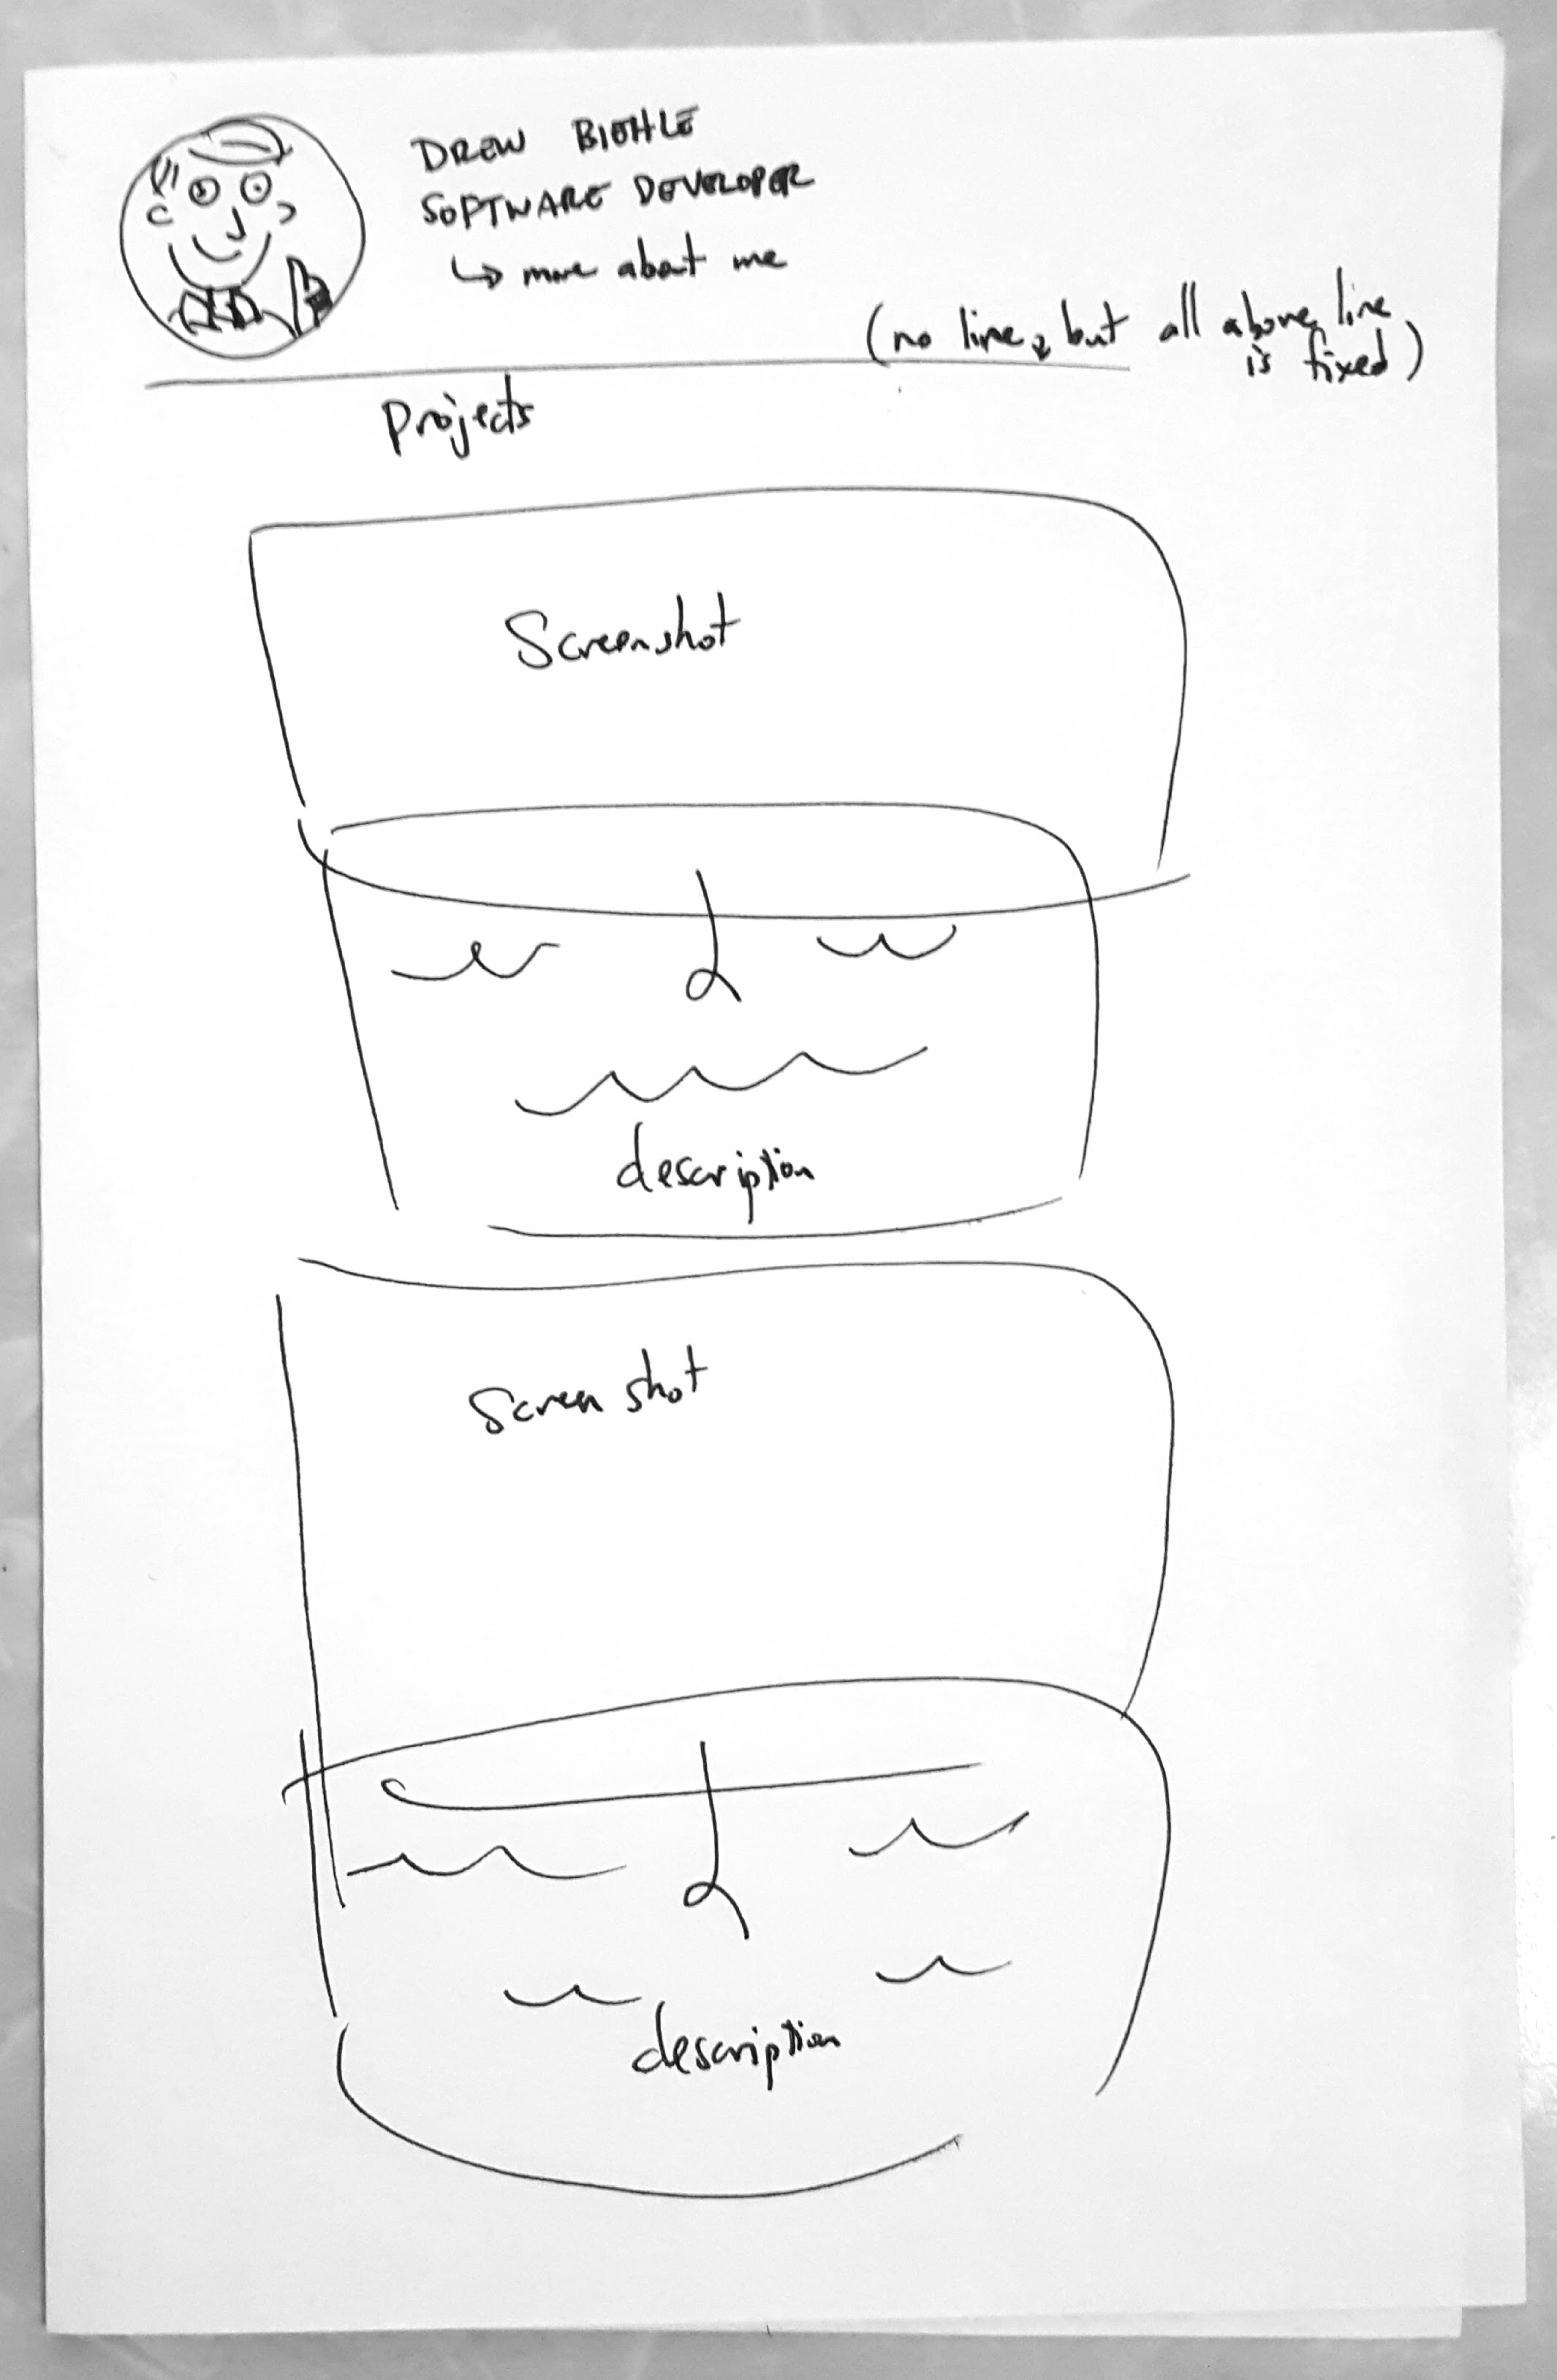 DREW BIEHLE
SOFTWARE DEVELOPER
↳ more about me
(no line, but all above line
is fixed)
Projects
Screenshot
description
Screen shot
description